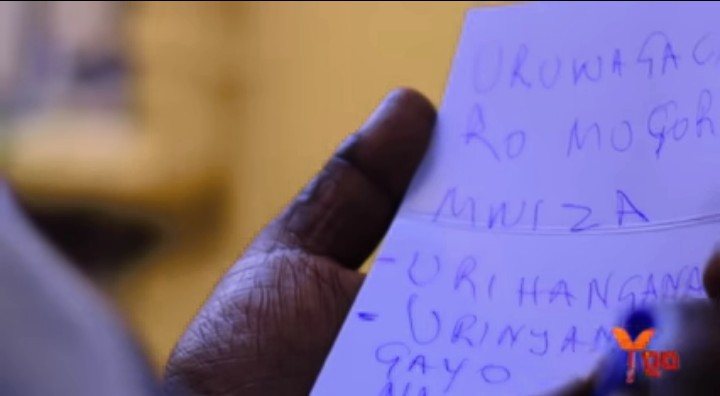 URUWAGAC
RO MUGOR
MWIZA
- URIHANGANA
- URINYAN
GAYO
NA